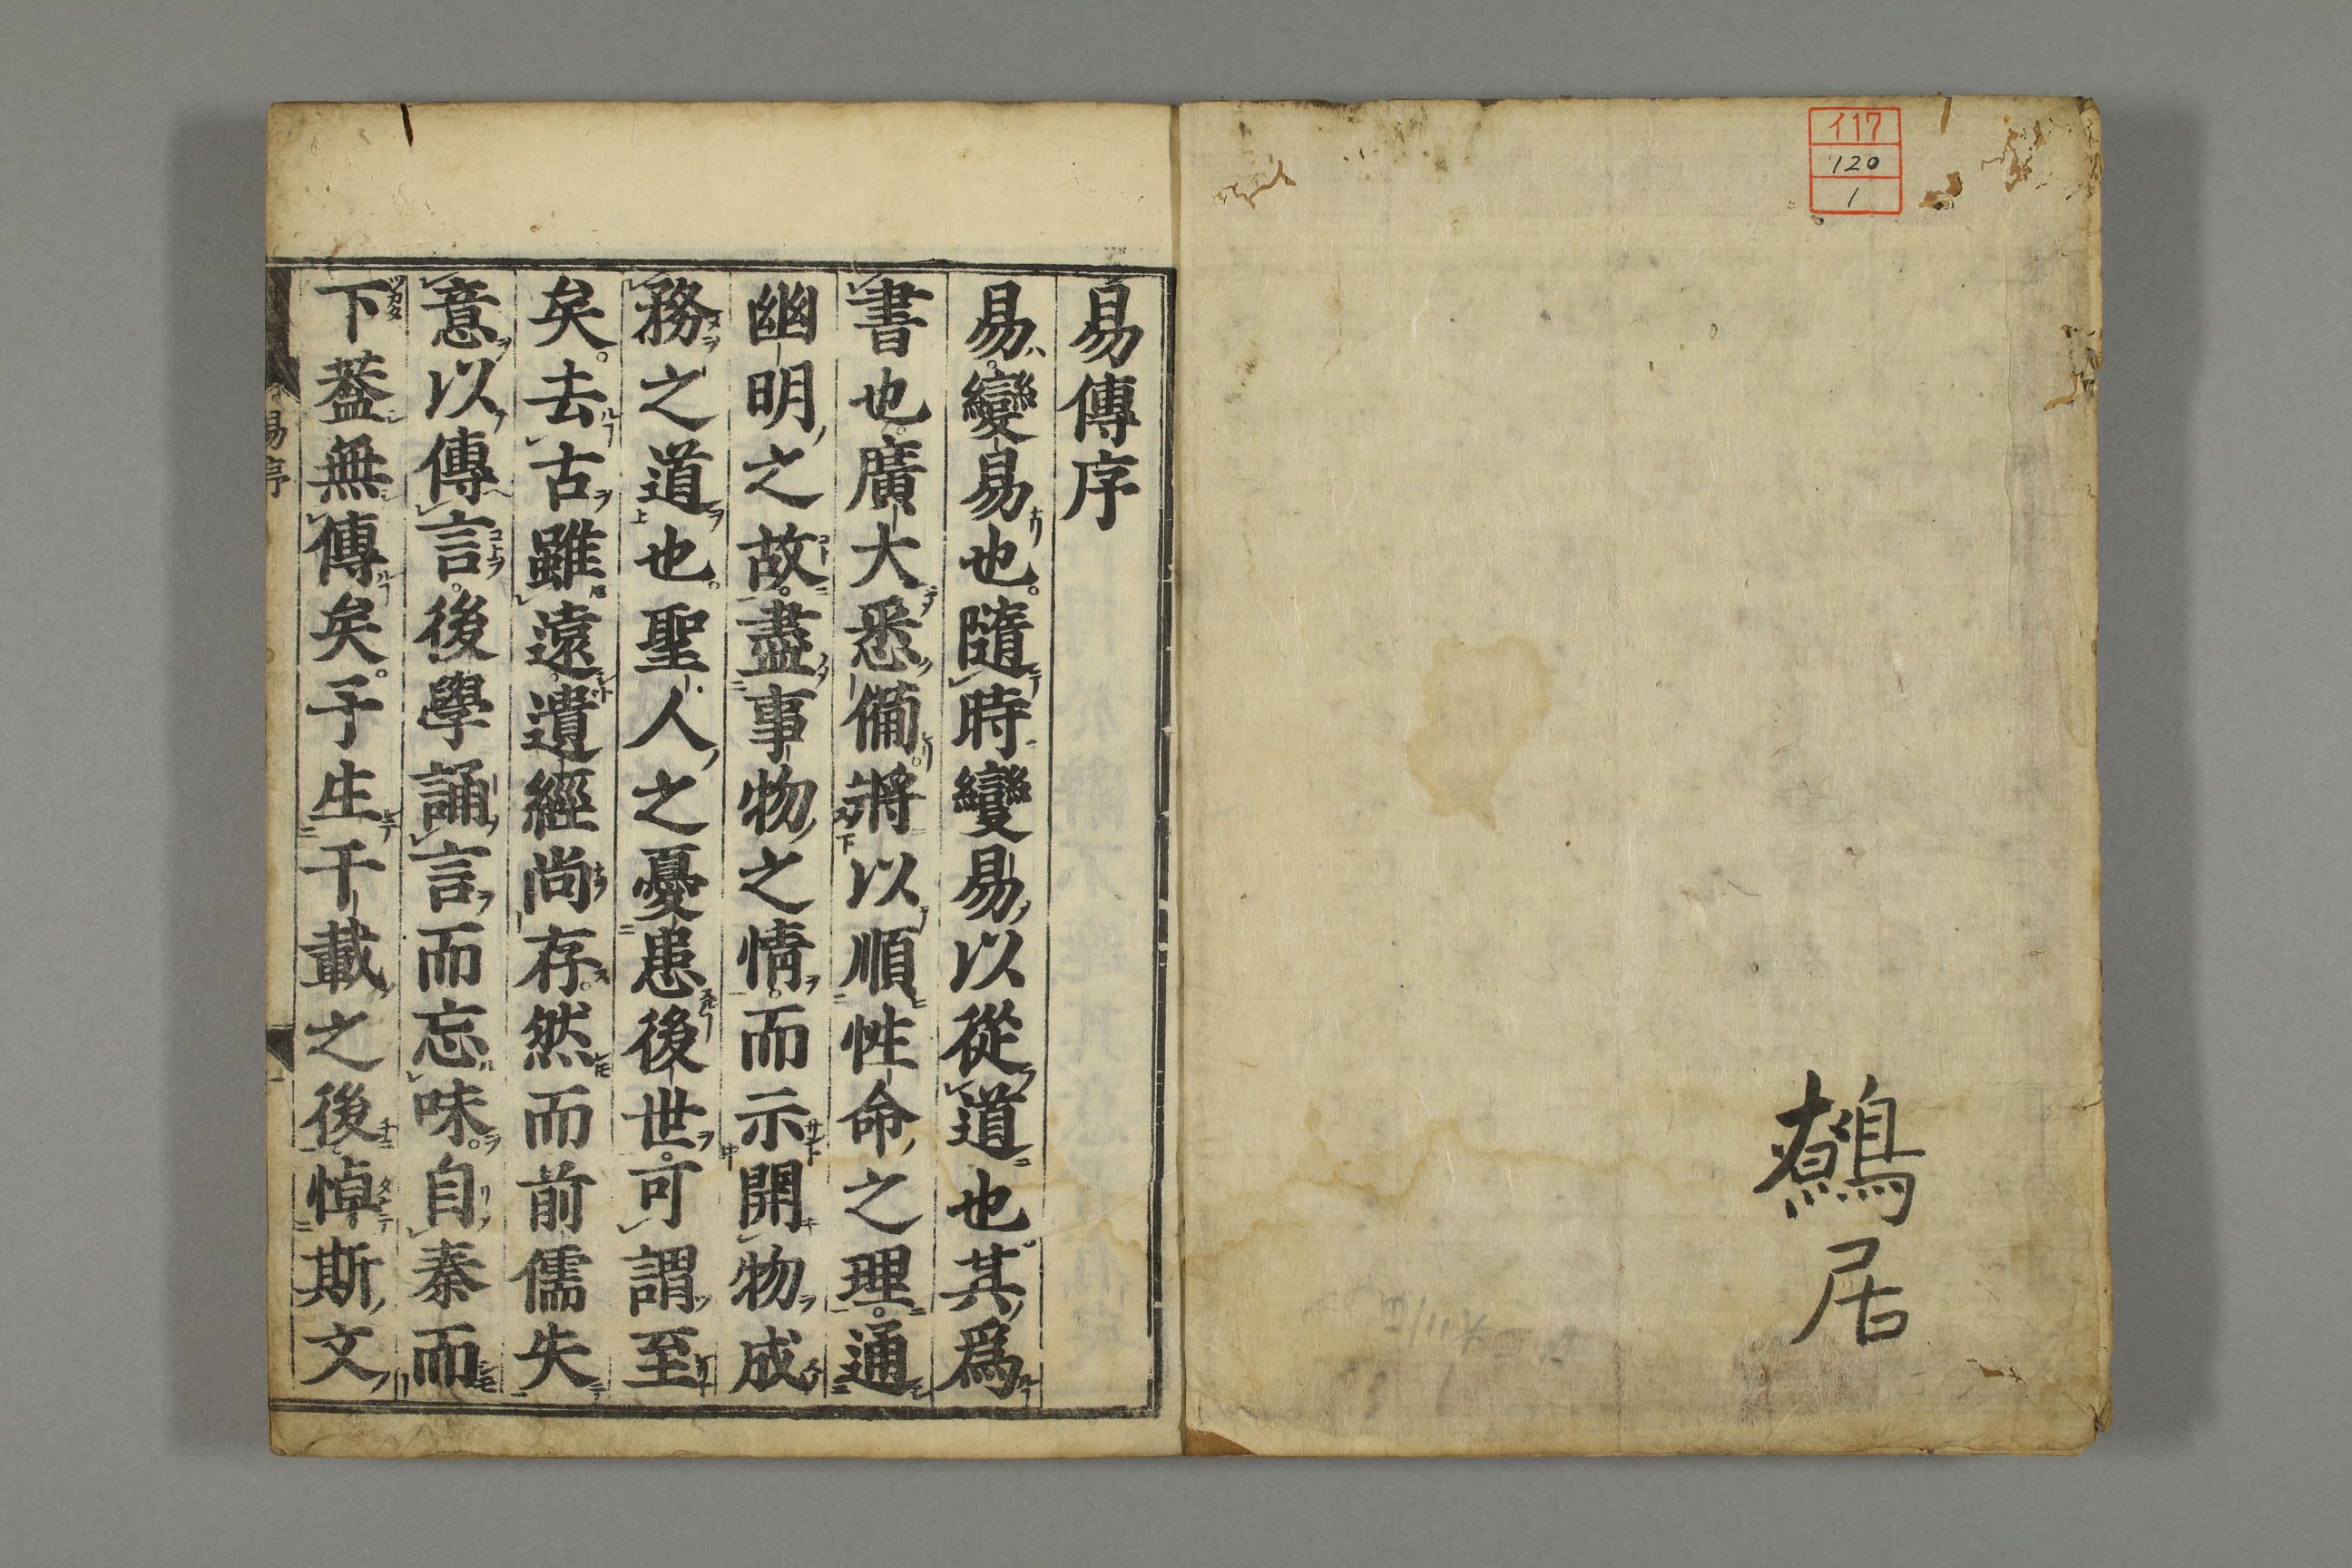 イ17
120
1
居
易傳序
易變易也。隨時變易以從道也。其爲
書也。廣大悉備。將以順性命之理。通
幽明之故。盡事物之情。而示開物成
務之道也。聖人之憂患後世。可謂至
矣。去古雖遠。遺經尚存。然而前儒失
意以傳言。後學誦言而忘味。自秦而
下蓋無傳矣。予生千載之後。悼斯文
易序